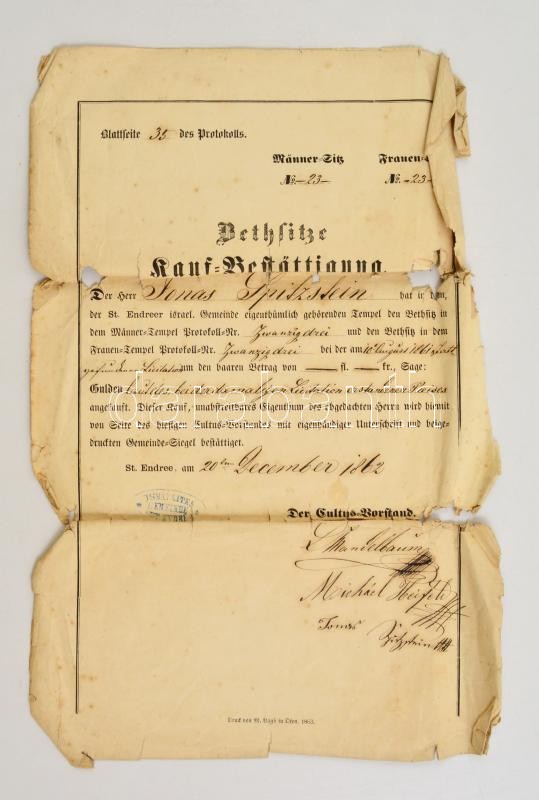 Blattseite 35 des Protokolls.
Männer-Sitz Frauen-
No. -23- No. -23-
Bethsitze
Kauf-Bestättigung.
Der Herr Jonas Spitzstein hat in dem,
der St. Endreer israel. Gemeinde eigenthümlich gehörenden Tempel den Bethsitz in
dem Männer-Tempel Protokoll-Nr. Zwanzigdrei und den Bethsitz in dem
Frauen-Tempel Protokoll-Nr. Zwanzigdrei bei der am 10 August 1861 statt
gefundenen Licitation um den baaren Betrag von — fl. — kr., Sage:
Gulden laut des bei der damaligen Licitation erstandenen Preises
angekauft. Dieser Kauf, unabstreitbares Eigenthum des obgedachten Herrn wird hiemit
von Seite des hiesigen Cultus-Vorstandes mit eigenhändiger Unterschrift und beige-
druckten Gemeinde-Siegel bestättiget.
St. Endree, am 20ten December 1862
ISRAELITEN
GEMEINDE
Der Cultus-Vorstand.
L Mandelbaum
Michael
Jonas Spitzstein
Druck von M. Bagó in Ofen. 1863.